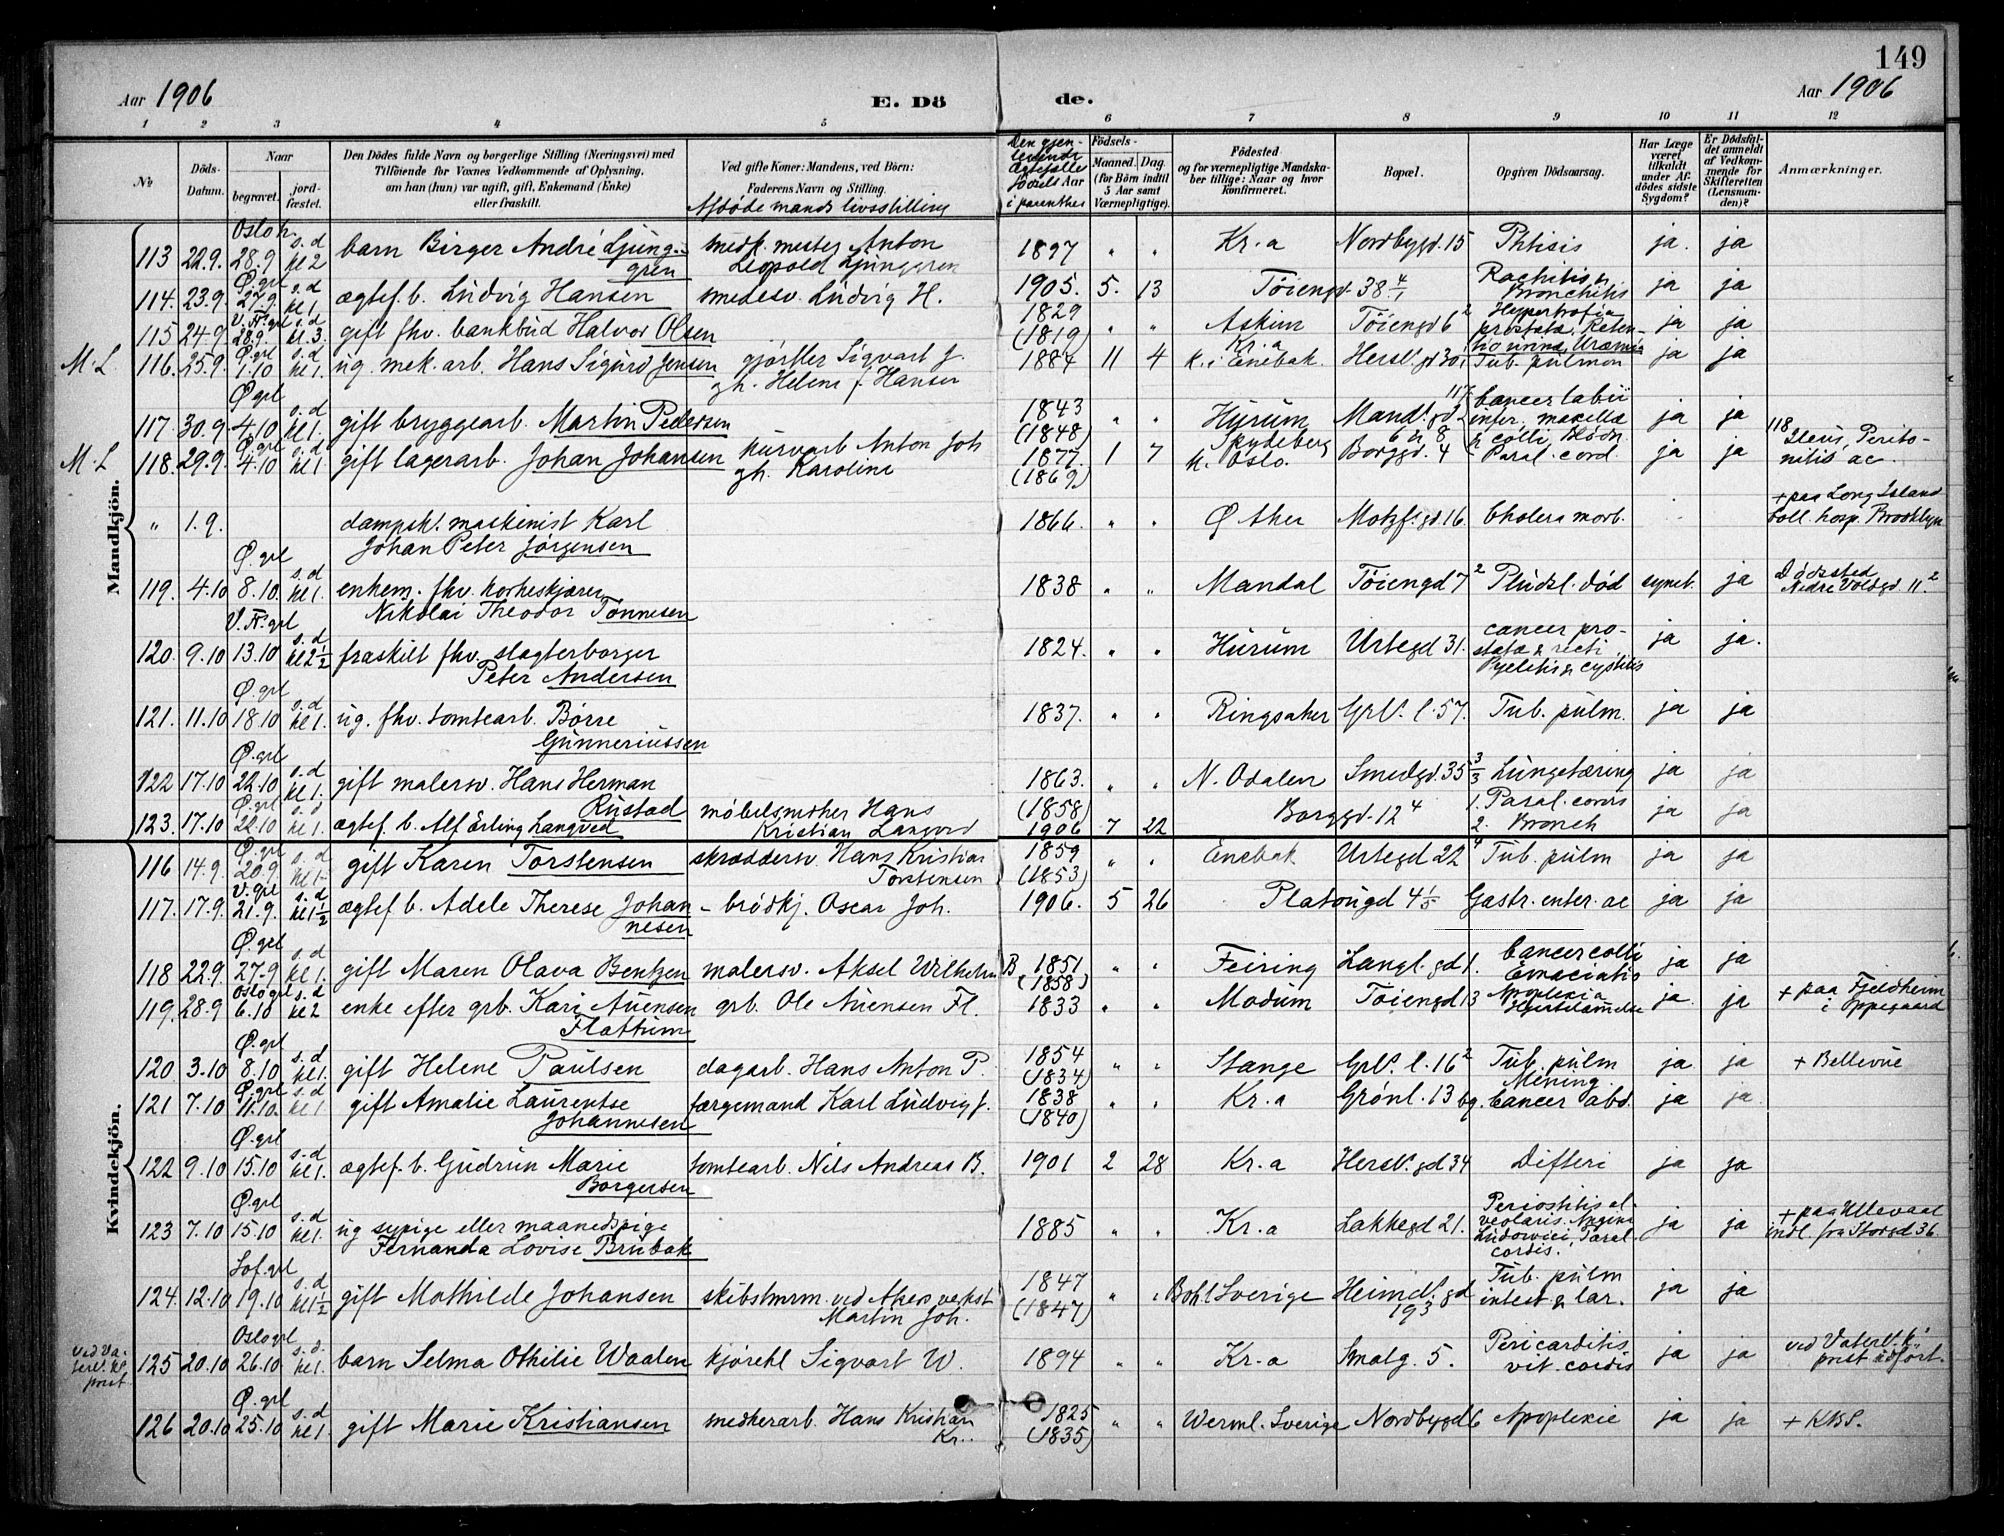 149
Aar 1906 E. Dö de. Aar 1906
1 2 3 4 5 6 7 8 9 10 11 12
No Döds-Datum. Naar begravet. jord-fæstet. Den Dödes fulde Navn og borgerlige Stilling (Næringsvei) med Tilföiende for Voxnes Vedkommende af Oplysning, om han (hun) var ugift, gift, Enkemand (Enke) eller fraskilt. Ved gifte Koner: Mandens, ved Börn: Faderens Navn og Stilling. Afdöde mands livsstilling
Den gjenlevende Ægtefælles födsels Aar i parenthes Födsels- Maaned. Dag. (for Börn indtil 5 Aar samt Værnepligtige). Födested og for værnepligtige Mandskaber tillige: Naar og hvor Konfirmeret. Bopæl. Opgiven Dödsaarsag. Har Læge været tilkaldt under Afdödes sidste Sygdom? Er Dödsfaldet anmeldt af Vedkommende for Skifteretten (Lensmanden)? Anmærkninger.
Mandkjön.
Oslo k.
113 22.9. 28.9 s.d kl 2 barn Birger André Ljunggren medk. mester Anton Leopold Ljunggren 1897 " " Kr.a Nordbygd. 15 Phtisis ja. ja
Ø. grl
114. 23.9. 27.9. s.d kl 1. ægtef. b. Ludvig Hansen smedesv. Ludvig H. 1905. 5. 13 Töiengd. 38 4/1 Rachitis & Bronchitis ja ja
115 24.9 28.9. s.d kl. 3. gift fhv. bankbud Halvor Olsen 1829 (1819) " " Askim Töiengd 6 2 Hypertrofia prostatæ, Retentio urinæ, Uræmi ja ja
M.L. 116. 25.9. Ø. grl 1.10 s.d kl 1. ug. mek. arb. Hans Sigurd Jensen gjörtler Sigvart J. gh. Helene f. Hansen 1884 11 4 Kr.a k. i Enebak. Hersl. gd 30. Tub. pulmon ja ja
Ø grl
117. 30.9 4.10 s.d kl 1. gift bryggearb. Martin Pedersen 1843 (1848) " " Hurum Mandl. gd 2 117 Cancer labii infer. maxillæ & colli, Blödn. ja ja
M.L 118. 29.9. Ø grl 4.10 s.d kl 1. gift lagerarb. Johan Johansen kurvarb Anton Joh gh. Karoline 1877. (1869) 1 7 Skydeberg k. Oslo. Borggd. 4 Paral. cord. ja ja 118 Ileus, Peritonitis ac.
" 1.9. dampsk. maskinist Karl Johan Peter Jørgensen 1866. " " Ø Aker Motzf. gd. 16. Cholera morb. + paa Long Island Coll. hosp. Brooklyn.
Ø. grl
119. 4.10 8.10 s.d kl 1. enkem. fhv. korkeskjærer Nikolai Theodor Tønnesen 1838 " " Mandal Töiengd 7 2 Pludsl. död synet. ja Dödssted Nedre Voldgd. 11. 2
120. 9.10 13.10 s.d kl 2 1/2 fraskilt fhv. slagterborger Peter Andersen 1824. " " Hurum Urtegd 31. cancer prostatæ & recti Pyelitis & cystitis ja ja.
Ø. grl
121. 11.10 18.10 s.d kl 1. ug. fhv. tomtearb. Børre Gunneriussen 1837. " " Ringsaker Grl. l. 57. Tub. pulm. ja ja
Ø. grl
122 17.10 22.10 s.d kl 1. gift malersv. Hans Herman Rustad 1863. (1858) " " N. Odalen Smedgd. 35 3/3 Lungetæring ja ja
123. 17.10 Ø. grl 22.10 s.d kl 1. ægtef. b. Alf Erling Langved möbelsnedker Hans Kristian Langved 1906 7 22 Borggd. 12 4 1. Paral. cordis 2. Bronch ja ja
Kvindekjön.
116 14.9. Ø. grl 20.9. s.d kl 1. gift Karen Torstensen skræddersv. Hans Kristian Torstensen 1859 (1853) " " Enebak Urtegd 22 4 Tub. pulm ja ja
117. 17.9. V. grl 21.9. s.d kl 1 1/2 ægtef. b. Adele Therese Johannesen brödkj. Oscar Joh. 1906. 5 26 Platougd 4 1/5 Gastr. enter. ac ja ja
Ø. grl
118 22.9. 27.9 s.d kl 1. gift Maren Olava Bentzen malersv. Aksel Wilhelm B 1851 (1858) " " Feiring Langl. gd 1. Cancer colli Emaciatio ja ja
119. 28.9 Oslo grl 6.10 s.d kl 2 enke efter grb. Kari Auensen Flattum grb. Ole Auensen Fl. 1833 " " Modum Töiengd 13 Apoplexia Hjertelammelse ja. ja + paa Fjeldheim i Oppegaard
Ø. grl
120 3.10 8.10 s.d kl 1. gift Helene Paulsen dagarb. Hans Anton P. 1854 (1834) " " Stange Grl. l. 16 2 Tub. pulm Mening ja ja + Bellevue
121 7.10 Ø grl 11.10. s.d kl 1 gift Amalie Laurentse Johannesen færgemand Karl Ludvig J. 1838 (1840) " " Kr.a Grönl. 13 bg. Cancer abd. ja ja.
Ø. grl
122 9.10 15.10 s.d kl 1. ægtef. b. Gudrun Marie Borgersen tomtearb. Nils Andreas B. 1901 2 28 Kr.a Hersl. gd 34 Difteri ja ja
Ø. grl
123 7.10 15.10 s.d kl 1. ug sypige eller maanedspige Fernanda Lovise Brubak 1885 " " Kr.a Lakkegd 21. Periostitis alveolaris. Angina Ludovici, Paral. cordis. ja ja + paa Ullevaal indl. fra Storgd 36.
Sof. grl
124. 12.10 19.10 s.d kl 1 1/2 gift Mathilde Johansen skibstmrm. ved Akers verkst Martin Joh. 1847 (1847) " " Bohl. Sverige Heimdl. gd 19 3 Tub. pulm intest & lar. ja ja
Oslo grl
ved Vaterl. kl. prest 125 20.10 26.10 s.d. kl 1. barn Selma Othilie Waalen kjörekl Sigvart W. 1894 " " Kr.a Smalg. 5. Pericarditis vit. cordis ja ja ved Vaterl. k. prest udført.
Ø. grl
126 20.10 25.10 s.d kl 1. gift Marie Kristiansen medkerarb. Hans Kristian Kr.. 1825 (1835) " " Werml. Sverige Nordbygd 6 Apoplexie ja ja + KBS.